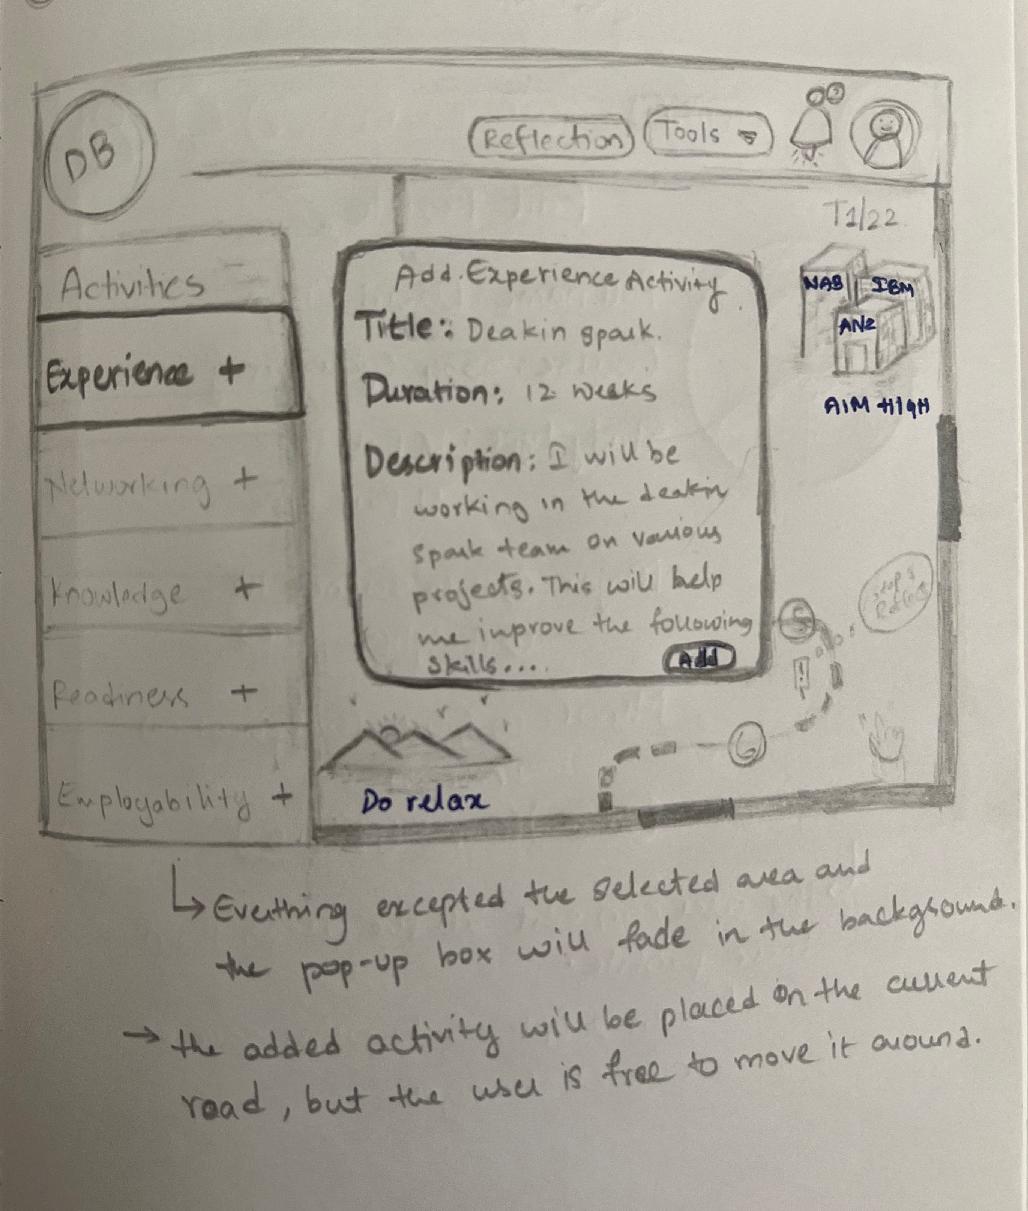 DB
Reflection
Tools
T1/22
Activities
Experience +
Networking +
Knowledge +
Readiness +
Employability +
Add Experience Activity
Title: Deakin spark.
Duration: 12 weeks
Description: I will be
working in the deakin
spark team on various
projects. This will help
me improve the following
skills....
Add
NAB
IBM
ANZ
AIM HIGH
Stop &
Reflect
5
!
6
Do relax
↳ Everthing excepted the selected area and
the pop-up box will fade in the background.
→ the added activity will be placed on the current
road, but the user is free to move it around.